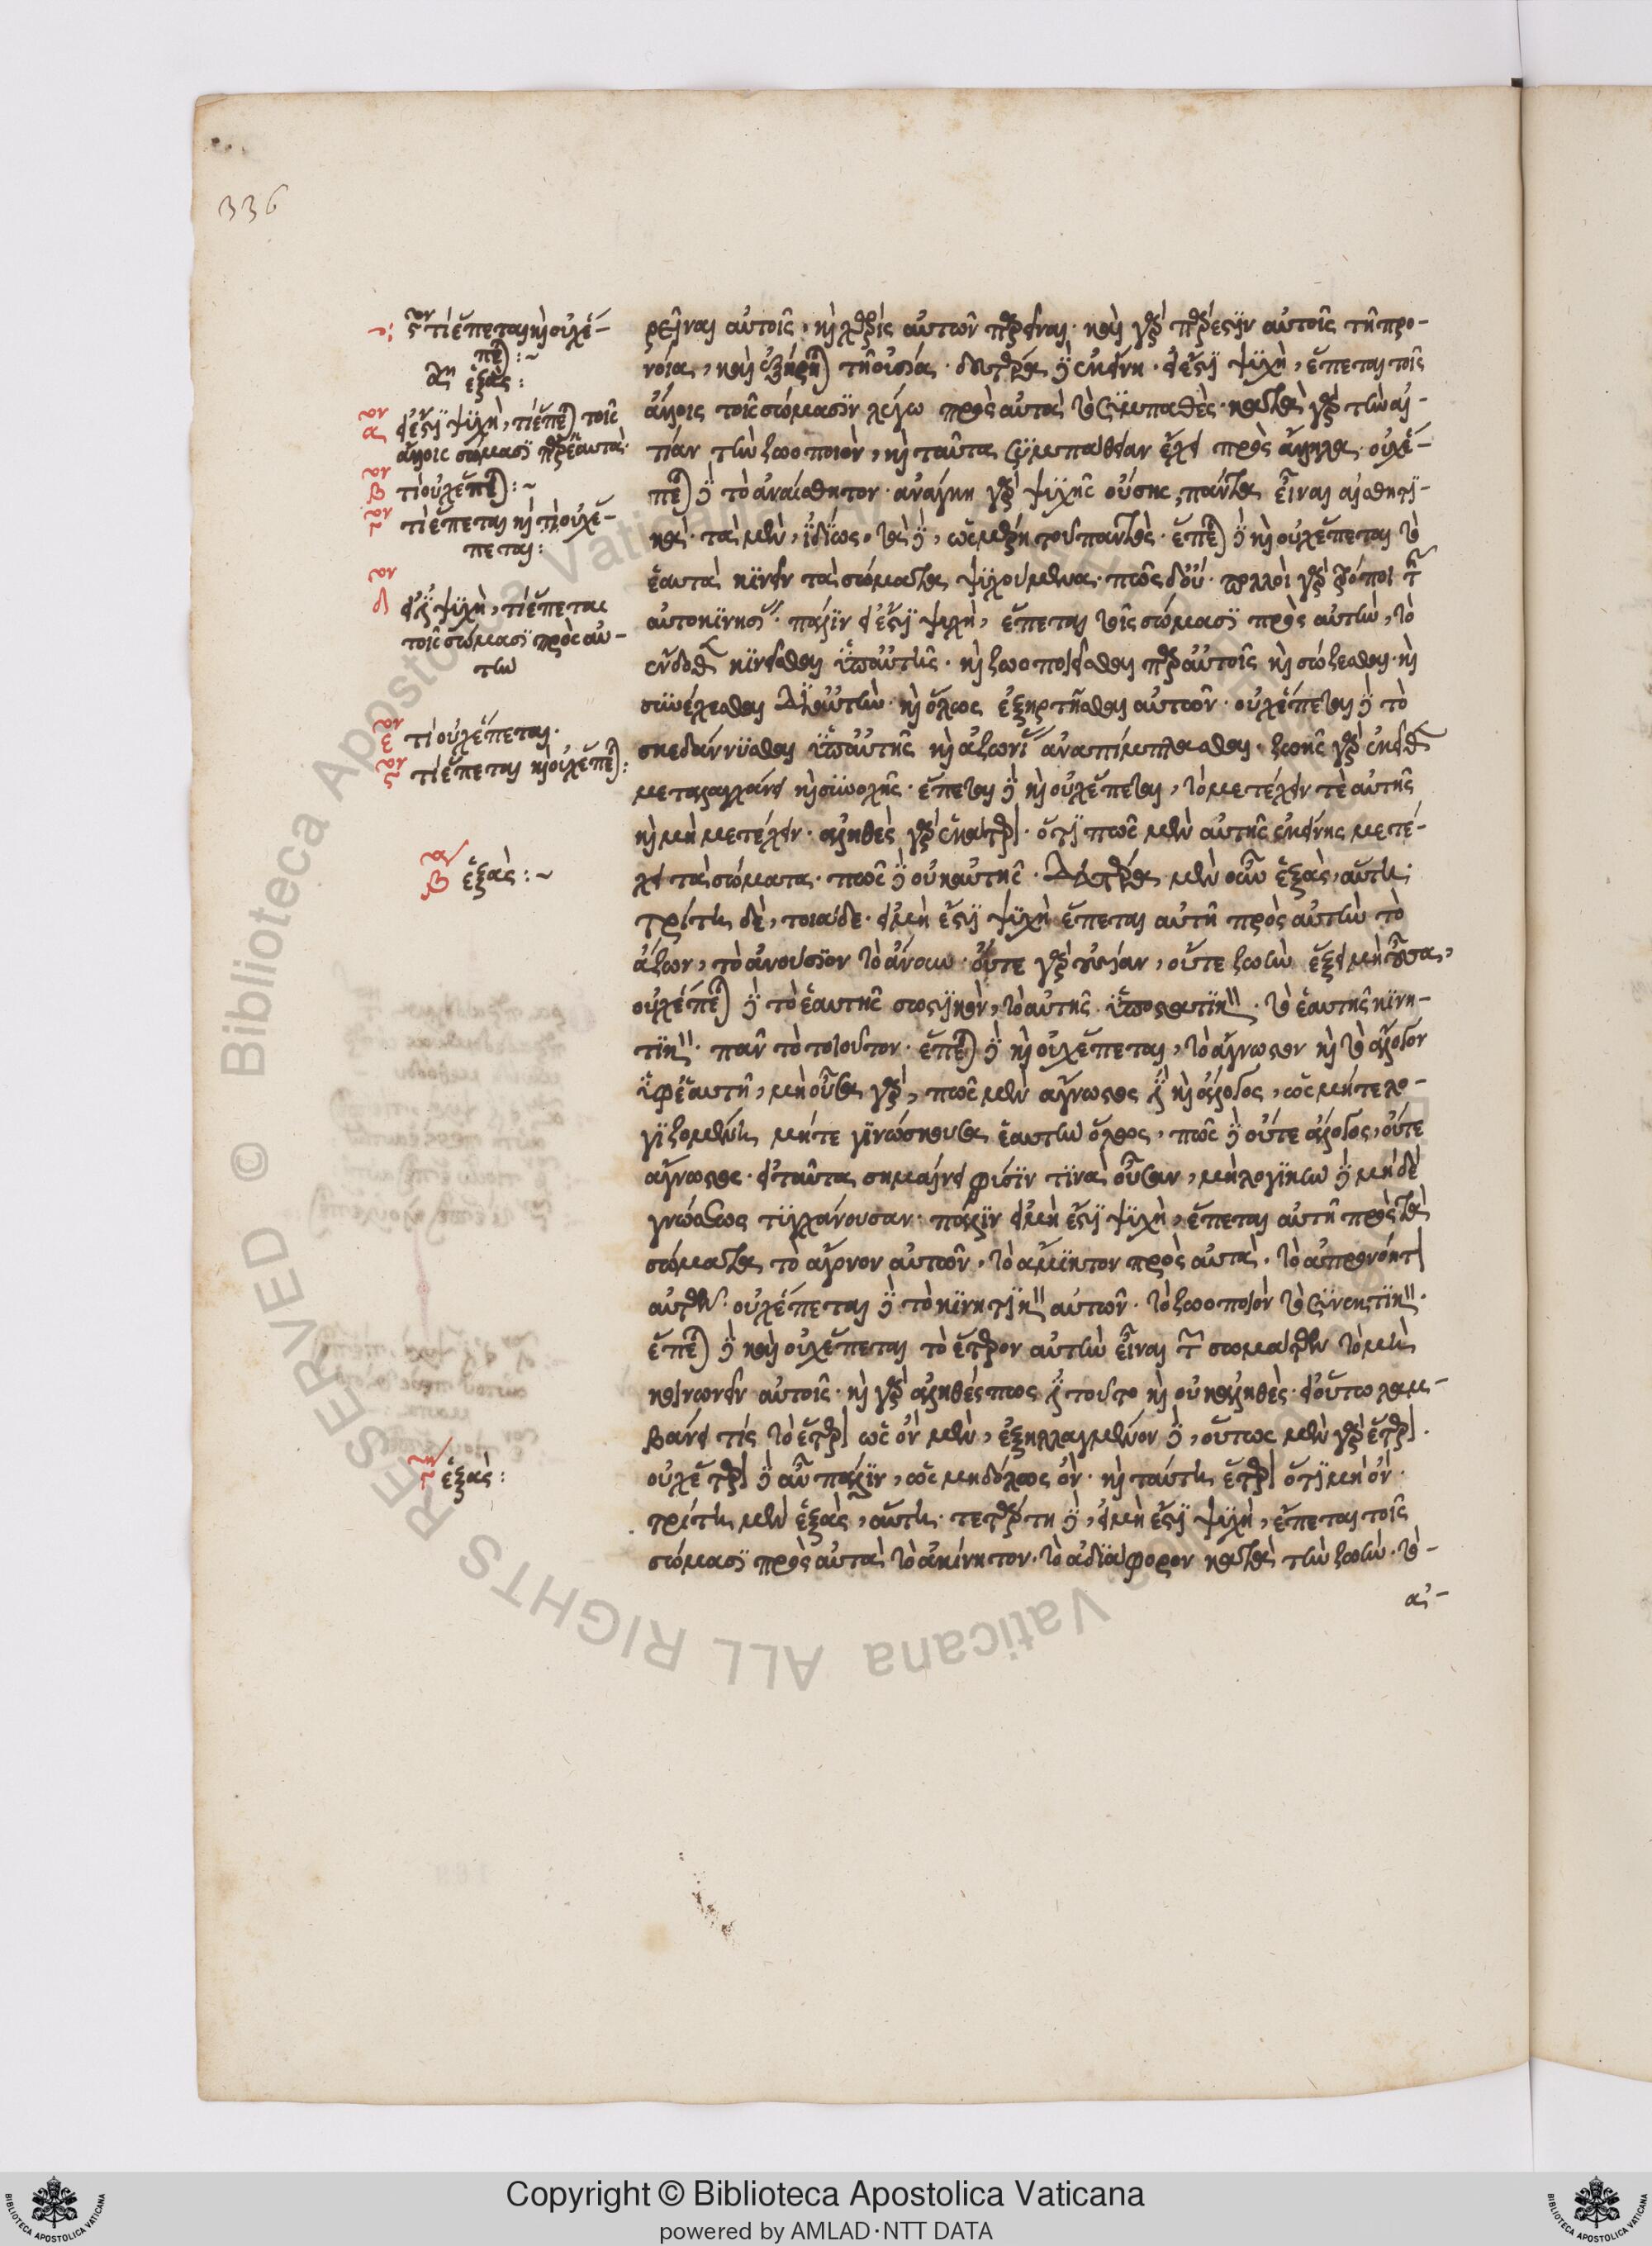 336
ϛον τί ἕπεται καὶ οὐχ ἕ-
πεται:~
αη ἑξάς:
αον εἰ ἔστι ψυχὴ, τί ἕπεται τοῖς
ἄλλοις σώμασι πρὸς ἑαυτά·
βον τί οὐχ ἕπεται:~
γον τί ἕπεται καὶ τί οὐχ ἕ-
πεται:
δον εἰ ἔστι ψυχὴ, τί ἕπεται
τοῖς σώμασι πρὸς αὐ-
τὴν
εον τί οὐχ ἕπεται.
ϛον τί ἕπεται καὶ οὐχ ἕπεται:
βα ἑξάς:~
γη ἑξάς:
ρεῖναι αὐτοῖς, καὶ χωρὶς αὐτῶν παρεῖναι· καὶ γὰρ πάρεστιν αὐτοῖς τῇ προ-
νοίᾳ, καὶ ἐξῄρηται τῇ οὐσίᾳ. δευτέρα δὲ ἐκείνη· εἰ ἔστι ψυχὴ, ἕπεται τοῖς
ἄλλοις τοῖς σώμασιν λέγω πρὸς αὐτὰ τὸ συμπαθές· κατὰ γὰρ τὴν αἰ-
τίαν τὴν ζωοποιὸν, καὶ ταῦτα συμπάθειαν ἔχει πρὸς ἄλληλα. οὐχ ἕ-
πεται δὲ τὸ ἀναίσθητον· ἀνάγκη γὰρ ψυχῆς οὔσης, πάντα εἶναι αἰσθητι-
κά· τὰ μὲν, ἰδίως· τὰ δὲ, ὡς μέρη τοῦ παντός. ἕπεται δὲ καὶ οὐχ ἕπεται τὸ
ἑαυτὰ κινεῖν τὰ σώματα ψυχούμενα· πολλοὶ γὰρ τρόποι τῆς
αὐτοκινησίας. πάλιν εἰ ἔστι ψυχὴ, ἕπεται τοῖς σώμασι πρὸς αὐτὴν, τὸ
ἔνδοθεν κινεῖσθαι ὑπ' αὐτῆς· καὶ ζωοποιεῖσθαι παρ' αὐτοῖς καὶ σώζεσθαι· καὶ
συνέχεσθαι δι' αὐτὴν· καὶ ὅλως ἐξηρτῆσθαι αὐτῶν· οὐχ ἕπεται δὲ τὸ
σκεδάννυσθαι ὑπ' αὐτῆς καὶ ἀζωΐας ἀναπίμπλασθαι· ζωῆς γὰρ ἐκεῖθεν
μεταλαγχάνει καὶ συνοχῆς· ἕπεται δὲ καὶ οὐχ ἕπεται, τὸ μετέχειν τε αὐτῆς
καὶ μὴ μετέχειν· ἀληθὲς γὰρ ἑκάτερον· ὅτι πῶς μὲν αὐτῆς ἐκείνης μετέ-
χει τὰ σώματα· πῶς δὲ οὐκ αὐτῆς. δευτέρα μὲν οὖν ἑξὰς, αὕτη.
τρίτη δὲ, τοιάδε· εἰ μὴ ἔστι ψυχὴ ἕπεται αὐτῇ πρὸς αὐτὴν τὸ
ἄζων, τὸ ἀνούσιον τὸ ἄνουν· οὔτε γὰρ οὐσίαν, οὔτε ζωὴν ἕξει μὴ οὖσα,
οὐχ ἕπεται δὲ τὸ ἑαυτῆς σωστικὸν, τὸ αὐτῆς ὑποστατικόν· τὸ ἑαυτῆς κινη-
τικόν· πᾶν τὸ τοιοῦτον. ἕπεται δὲ καὶ οὐχ ἕπεται, τὸ ἄγνωστον καὶ τὸ ἄλογον
ὑφ' ἑαυτῇ, μὴ οὖσα γὰρ, πῶς μὲν ἄγνωστός ἐστι καὶ ἄλογος, ὡς μήτε λο-
γιζομένη μήτε γινώσκουσα ἑαυτὴν ὅλως, πῶς δὲ οὔτε ἄλογος, οὔτε
ἄγνωστος· εἰ ταῦτα σημαίνει φύσιν τινὰ οὖσαν, μὴ λογικὴν δὲ μηδὲ
γνώσεως τυγχάνουσαν· πάλιν εἰ μὴ ἔστι ψυχὴ, ἕπεται αὐτῇ πρὸς τὰ
σώματα τὸ ἄγονον αὐτῶν, τὸ ἄμικτον πρὸς αὐτά, τὸ ἀπρονόητον
αὐτῶν· οὐχ ἕπεται δὲ τὸ κινητικὸν αὐτῶν· τὸ ζωοποιὸν τὸ συνεκτικόν.
ἕπεται δὲ καὶ οὐχ ἕπεται τὸ ἕτερον αὐτὴν εἶναι τῶν σωμάτων τὸ μὴ
κοινωνεῖν αὐτοῖς· καὶ γὰρ ἀληθές πως ἐστὶ τοῦτο καὶ οὐκ ἀληθές· εἰ οὕτω λαμ-
βάνει τίς τὸ ἕτερον ὡς ὂν μὲν, ἐξηλλαγμένον δὲ, οὕτως μὲν γὰρ ἕτερον.
οὐχ ἕτερον δὲ αὖ πάλιν, ὡς μηδόλως ὄν· καὶ ταύτῃ ἕτερον ὅτι μὴ ὄν.
τρίτη μὲν ἑξὰς, αὕτη. τετάρτη δὲ, εἰ μὴ ἔστι ψυχὴ, ἕπεται τοῖς
σώμασι πρὸς αὐτὰ τὸ ἀκίνητον, τὸ ἀδιάφορον κατὰ τὴν ζωὴν· τὸ-
α᾽-
Copyright © Biblioteca Apostolica Vaticana
powered by AMLAD·NTT DATA